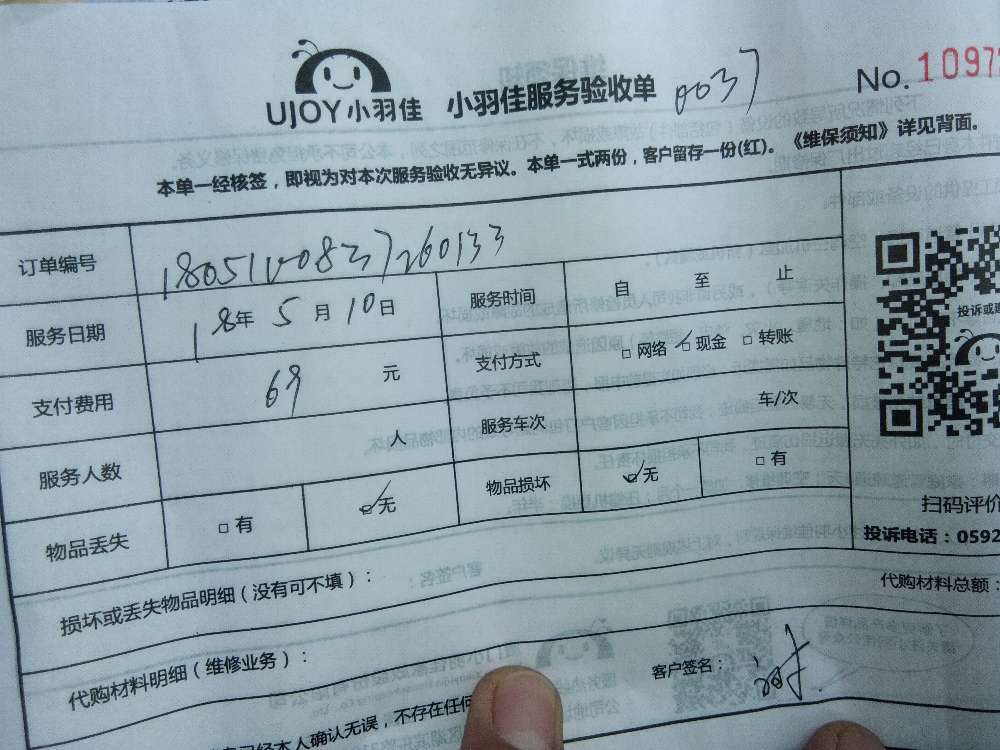 UJOY小羽佳 小羽佳服务验收单 0037 No. 1097
本单一经核签，即视为对本次服务验收无异议。本单一式两份，客户留存一份(红)。《维保须知》详见背面。
订单编号 1805100837260133
服务日期 18年 5月 10日 服务时间 自 至 止
支付费用 69 元 支付方式 □网络 ☑现金 □转账
服务人数 人 服务车次 车/次
物品丢失 □有 ☑无 物品损坏 ☑无 □有
投诉或
扫码评价
投诉电话：0592
损坏或丢失物品明细（没有可不填）：
代购材料总额：
代购材料明细（维修业务）：
客户签名：
已经本人确认无误，不存在任何